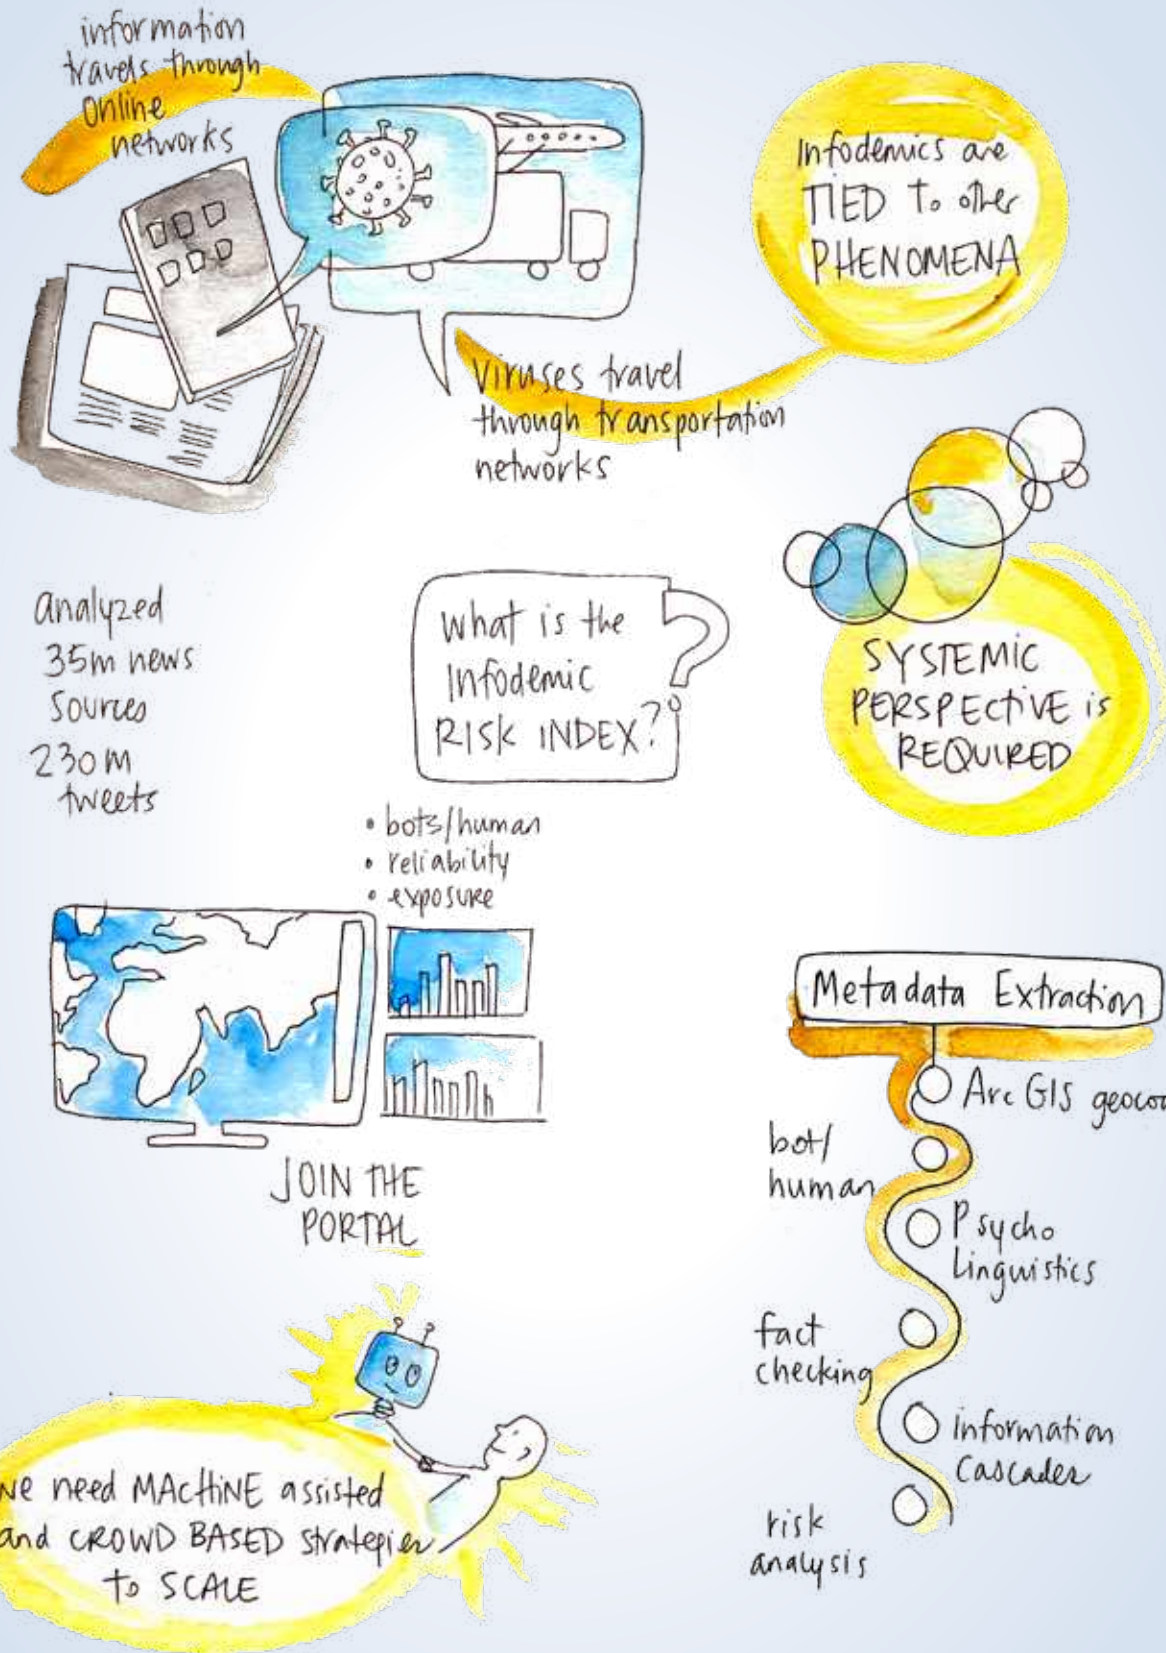 information
travels through
Online
networks
Infodemics are
TIED To other
PHENOMENA
Viruses travel
through transportation
networks
analyzed
35m news
Sources
230m
tweets
What is the
Infodemic
RISK INDEX?
SYSTEMIC
PERSPECTIVE is
REQUIRED
• bots/human
• reliability
• exposure
JOIN THE
PORTAL
Metadata Extraction
ArcGIS geoco
bot/
human
Psycho
Linguistics
fact
checking
information
Cascades
risk
analysis
we need MACHINE assisted
and CROWD BASED strategies
to SCALE